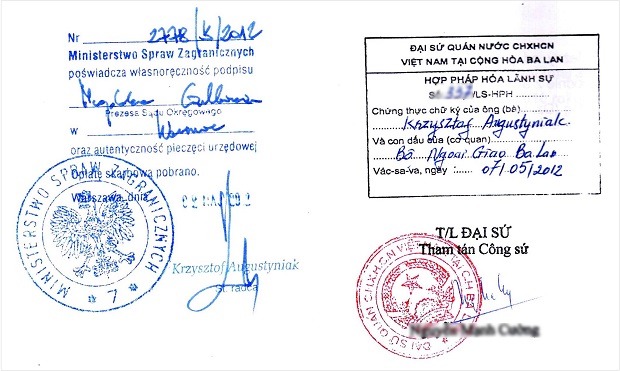 Nr 2778/K/2012
Ministerstwo Spraw Zagranicznych
poświadcza własnoręczność podpisu
Magdalena
Prezesa Sądu Okręgowego
w
oraz autentyczność pieczęci urzędowej
Opłatę skarbową pobrano.
Warszawa, dnia
MINISTERSTWO SPRAW ZAGRANICZNYCH
* 7 *
Krzysztof Augustyniak
st. radca
ĐẠI SỨ QUÁN NƯỚC CHXHCN
VIỆT NAM TẠI CỘNG HÒA BA LAN
HỢP PHÁP HÓA LÃNH SỰ
Số /LS-HPH
Chứng thực chữ ký của ông (bà)
Krzysztof Augustyniak
Và con dấu của (cơ quan)
Bộ Ngoại Giao Ba Lan
Vác-sa-va, ngày : 07/05/2012
T/L ĐẠI SỨ
Tham tán Công sứ
ĐẠI SỨ QUÁN CHXHCN VIỆT NAM TẠI CH BA LAN
Nguyễn Mạnh Cường